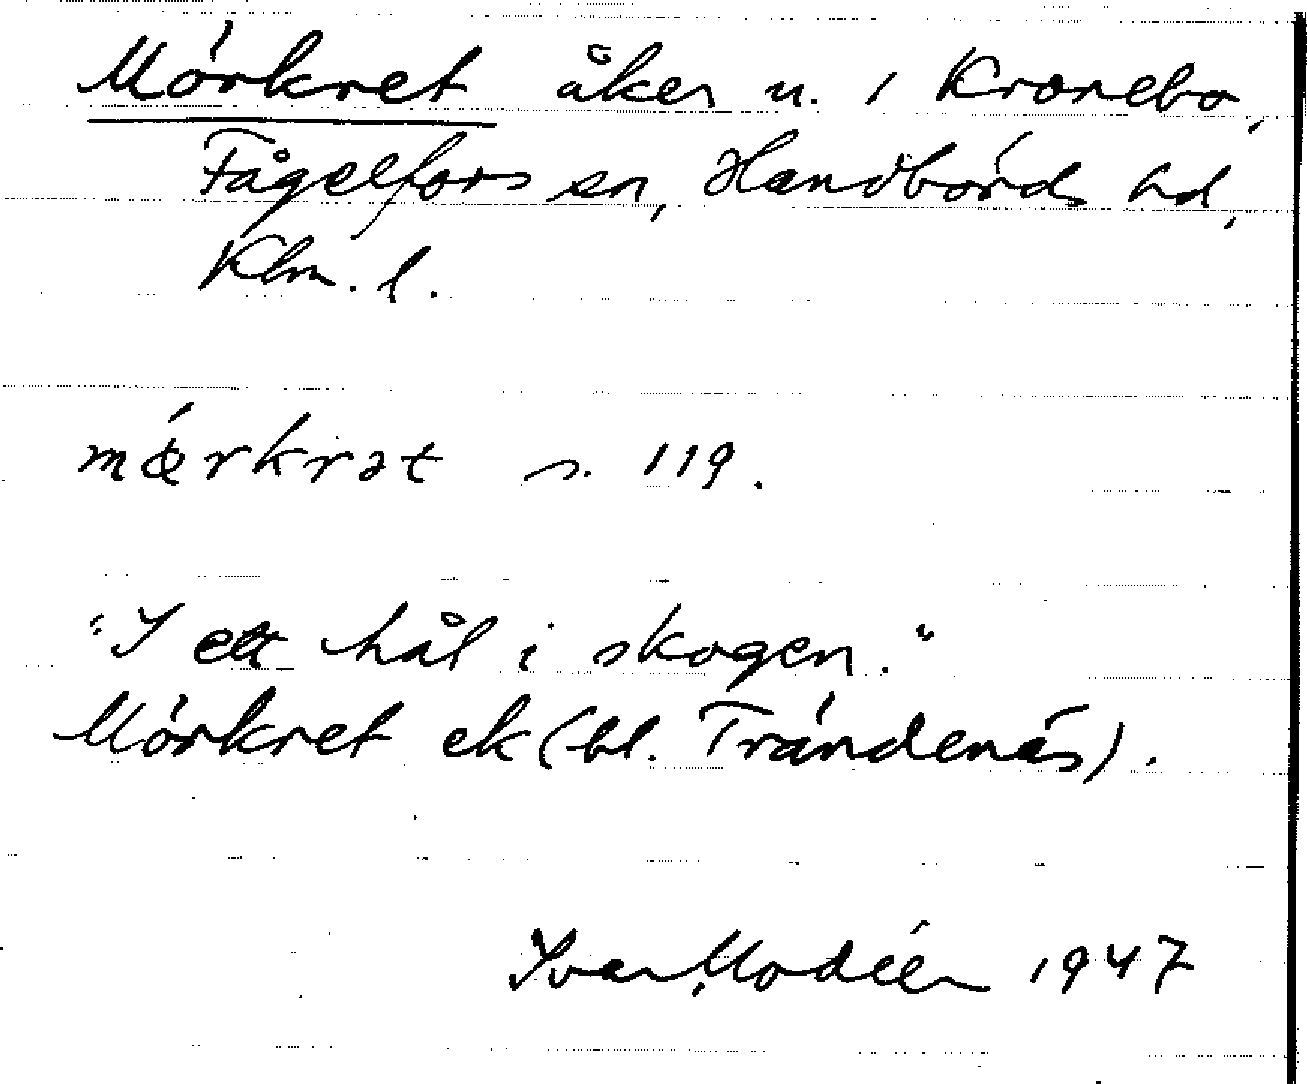 Mörkret åker n. i Kronebo,
Fågelfors sn, Handbörds hd,
Klm. l.
mœ́rkrət s. 119.
"I ett hål i skogen."
Mörkret ek (bl. Trändenäs).
Ivar Modéer 1947